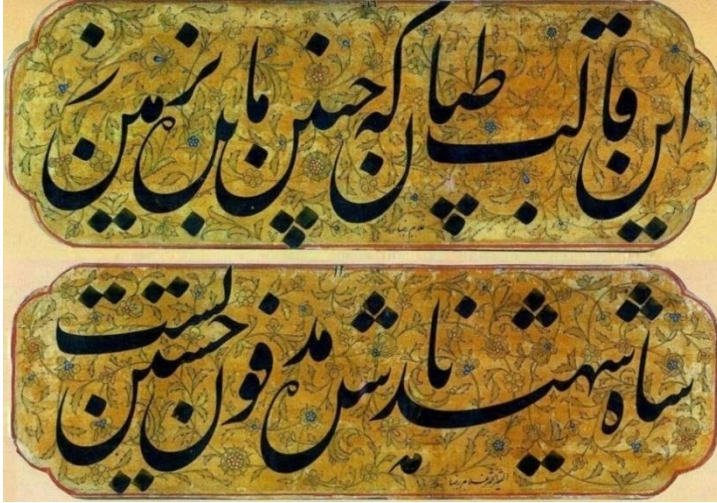 این قالب طپان که چنین مانده بر زمین
غلامرضا
شاه شهید ناشده مدفون حسین تست